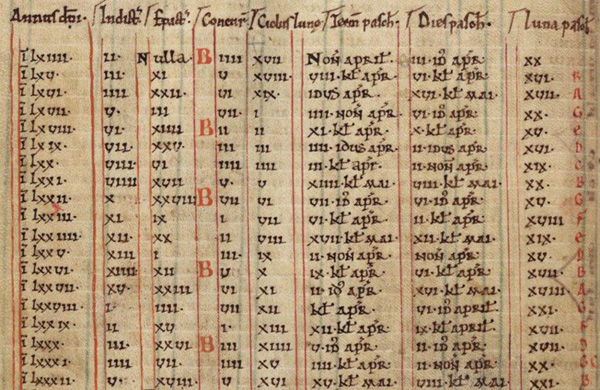 Annus dni. Indict. Epact. Concurr. Ciclus lune Term pasch. Dies pasch. Luna pasch.
ī lxiiii. ii. Nulla. B iiii xuii Noñ april. iii. id apr. xx
ī lxu. iii xi u xuiii. uiii. kl apr. ui. kl apr. xui. B
ī lxui. iiii xxii. ui xix. idus apr. xui. kl mai. xuii. A
ī lxuii. u. iii uii i iiii. noñ apr. ui. id apr. xx. G
ī lxuiii. ui. xiiii B ii ii xi. kl apr. x. kl apr. xu. e
ī lxix. uii. xxu. iii iii iiii. idus apr. ii. idus apr. xui. D
ī lxx. uiii ui iiii iiii iii. kl apr. ii. noñ apr. xix. C
ī lxxi. uiiii xuii u u xiiii. kl mai uiii. kl mai. xx. B
ī lxxii. x xxuiii B uii ui uii. id apr. ui. id apr. xu. G
ī lxxiii. xi ix i uii ui. kl apr. ii. kl apr. xuiii F
ī lxxiiii. xii. xx ii uiii xuii. kl mai. xii. kl mai. xix. e
ī lxxu. xiii i iii ix ii. noñ apr. noñ apr. xu. D
ī lxxui. xiiii xii B u x ix. kl apr. ui. kl apr. xuii B
ī lxxuii. xu. xxiii ui xi ii. id apr. xui. kl mai. xuiii A
ī lxxuiii. i. iiii uii xii kl apr. ui. id apr. xxi. G
ī lxxix. ii xu i. xiii xii. kl apr. ix. kl april. xuii. F
ī lxxx. iii. xxui. B iii xiiii u. id apr. iii. id apr. xui.
ī lxxxi. iiii uii. iiii xu iiii. kl apr. ii. noñ apr. xx.
ī lxxxii. u. xuiii u xui xu. kl mai uiii. kl mai. xxi.